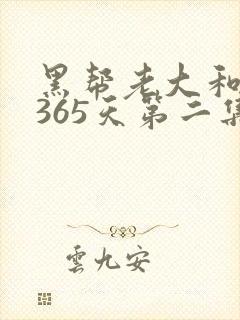 黑帮老大和
365天第二集
雲九安